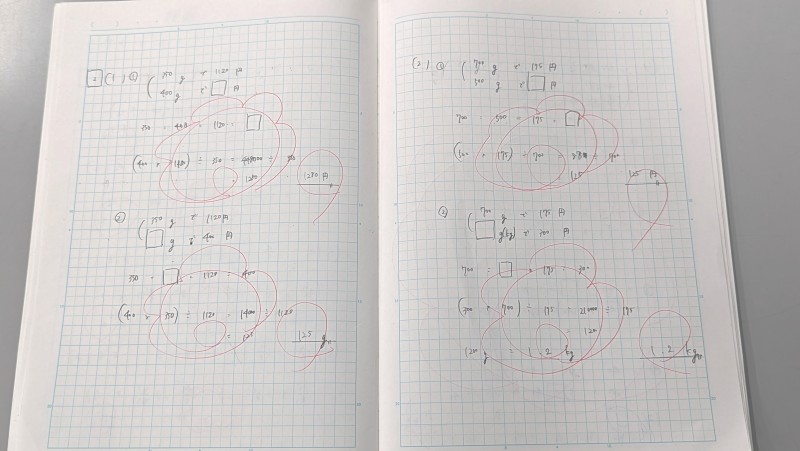 2 (1) ①
350 g で 1120 円
400 g で □ 円
350 : 400 = 1120 : □
(400 × 1120) ÷ 350 = 448000 ÷ 350
= 1280
1280 円
②
350 g で 1120 円
□ g で 400 円
350 : □ = 1120 : 400
(400 × 350) ÷ 1120 = 140000 ÷ 1120
= 125
125 g
(2) ①
700 g で 175 円
500 g で □ 円
700 : 500 = 175 : □
(500 × 175) ÷ 700 = ÷ 700
= 125
125 円
②
700 g で 175 円
□ g(kg) で 300 円
700 : □ = 175 : 300
(300 × 700) ÷ 175 = 210000 ÷ 175
= 1200
1200 g = 1.2 kg
1.2 kg